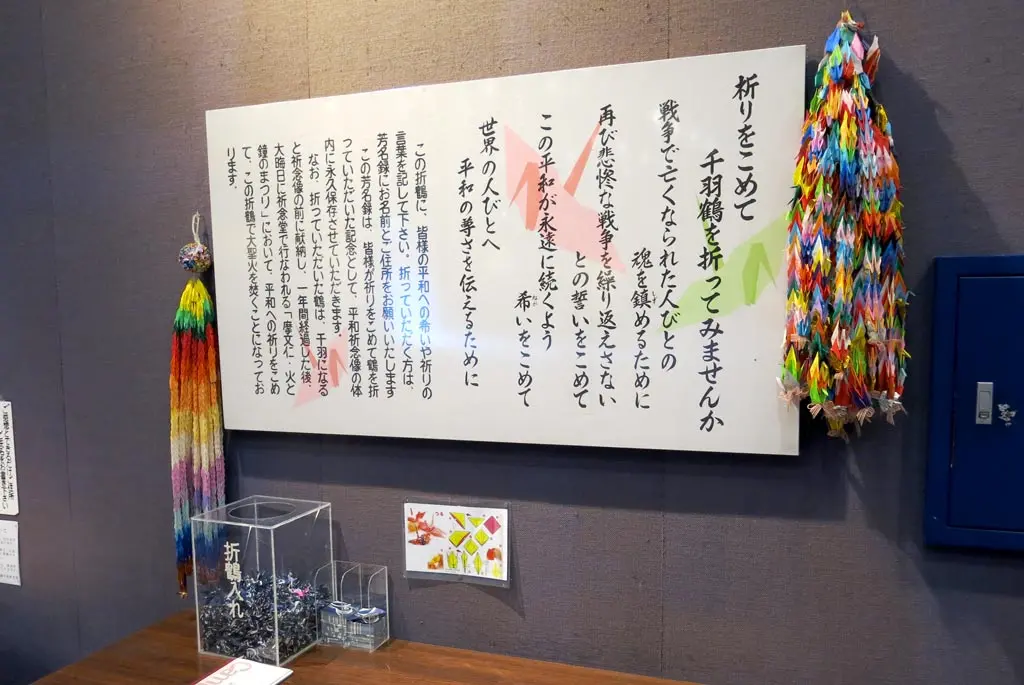 祈りをこめて
千羽鶴を折ってみませんか
戦争で亡くなられた人びとの
魂を鎮めるために
再び悲惨な戦争を繰り返えさない
との誓いをこめて
この平和が永遠に続くよう
希いをこめて
世界の人びとへ
平和の尊さを伝えるために
この折鶴に、皆様の平和への希いや祈りの
言葉を記して下さい。折っていただく方は、
芳名録にお名前とご住所をお願いいたします
この芳名録は、皆様が祈りをこめて鶴を折
っていただいた記念として、平和祈念像の体
内に永久保存させていただきます。
なお、折っていただいた鶴は、千羽になる
と祈念像の前に献納し、一年間経過した後、
大晦日に祈念堂で行なわれる「摩文仁・火と
鐘のまつり」において、平和への祈りをこめ
て、この折鶴で大聖火を焚くことになってお
ります。
折鶴入れ
つる